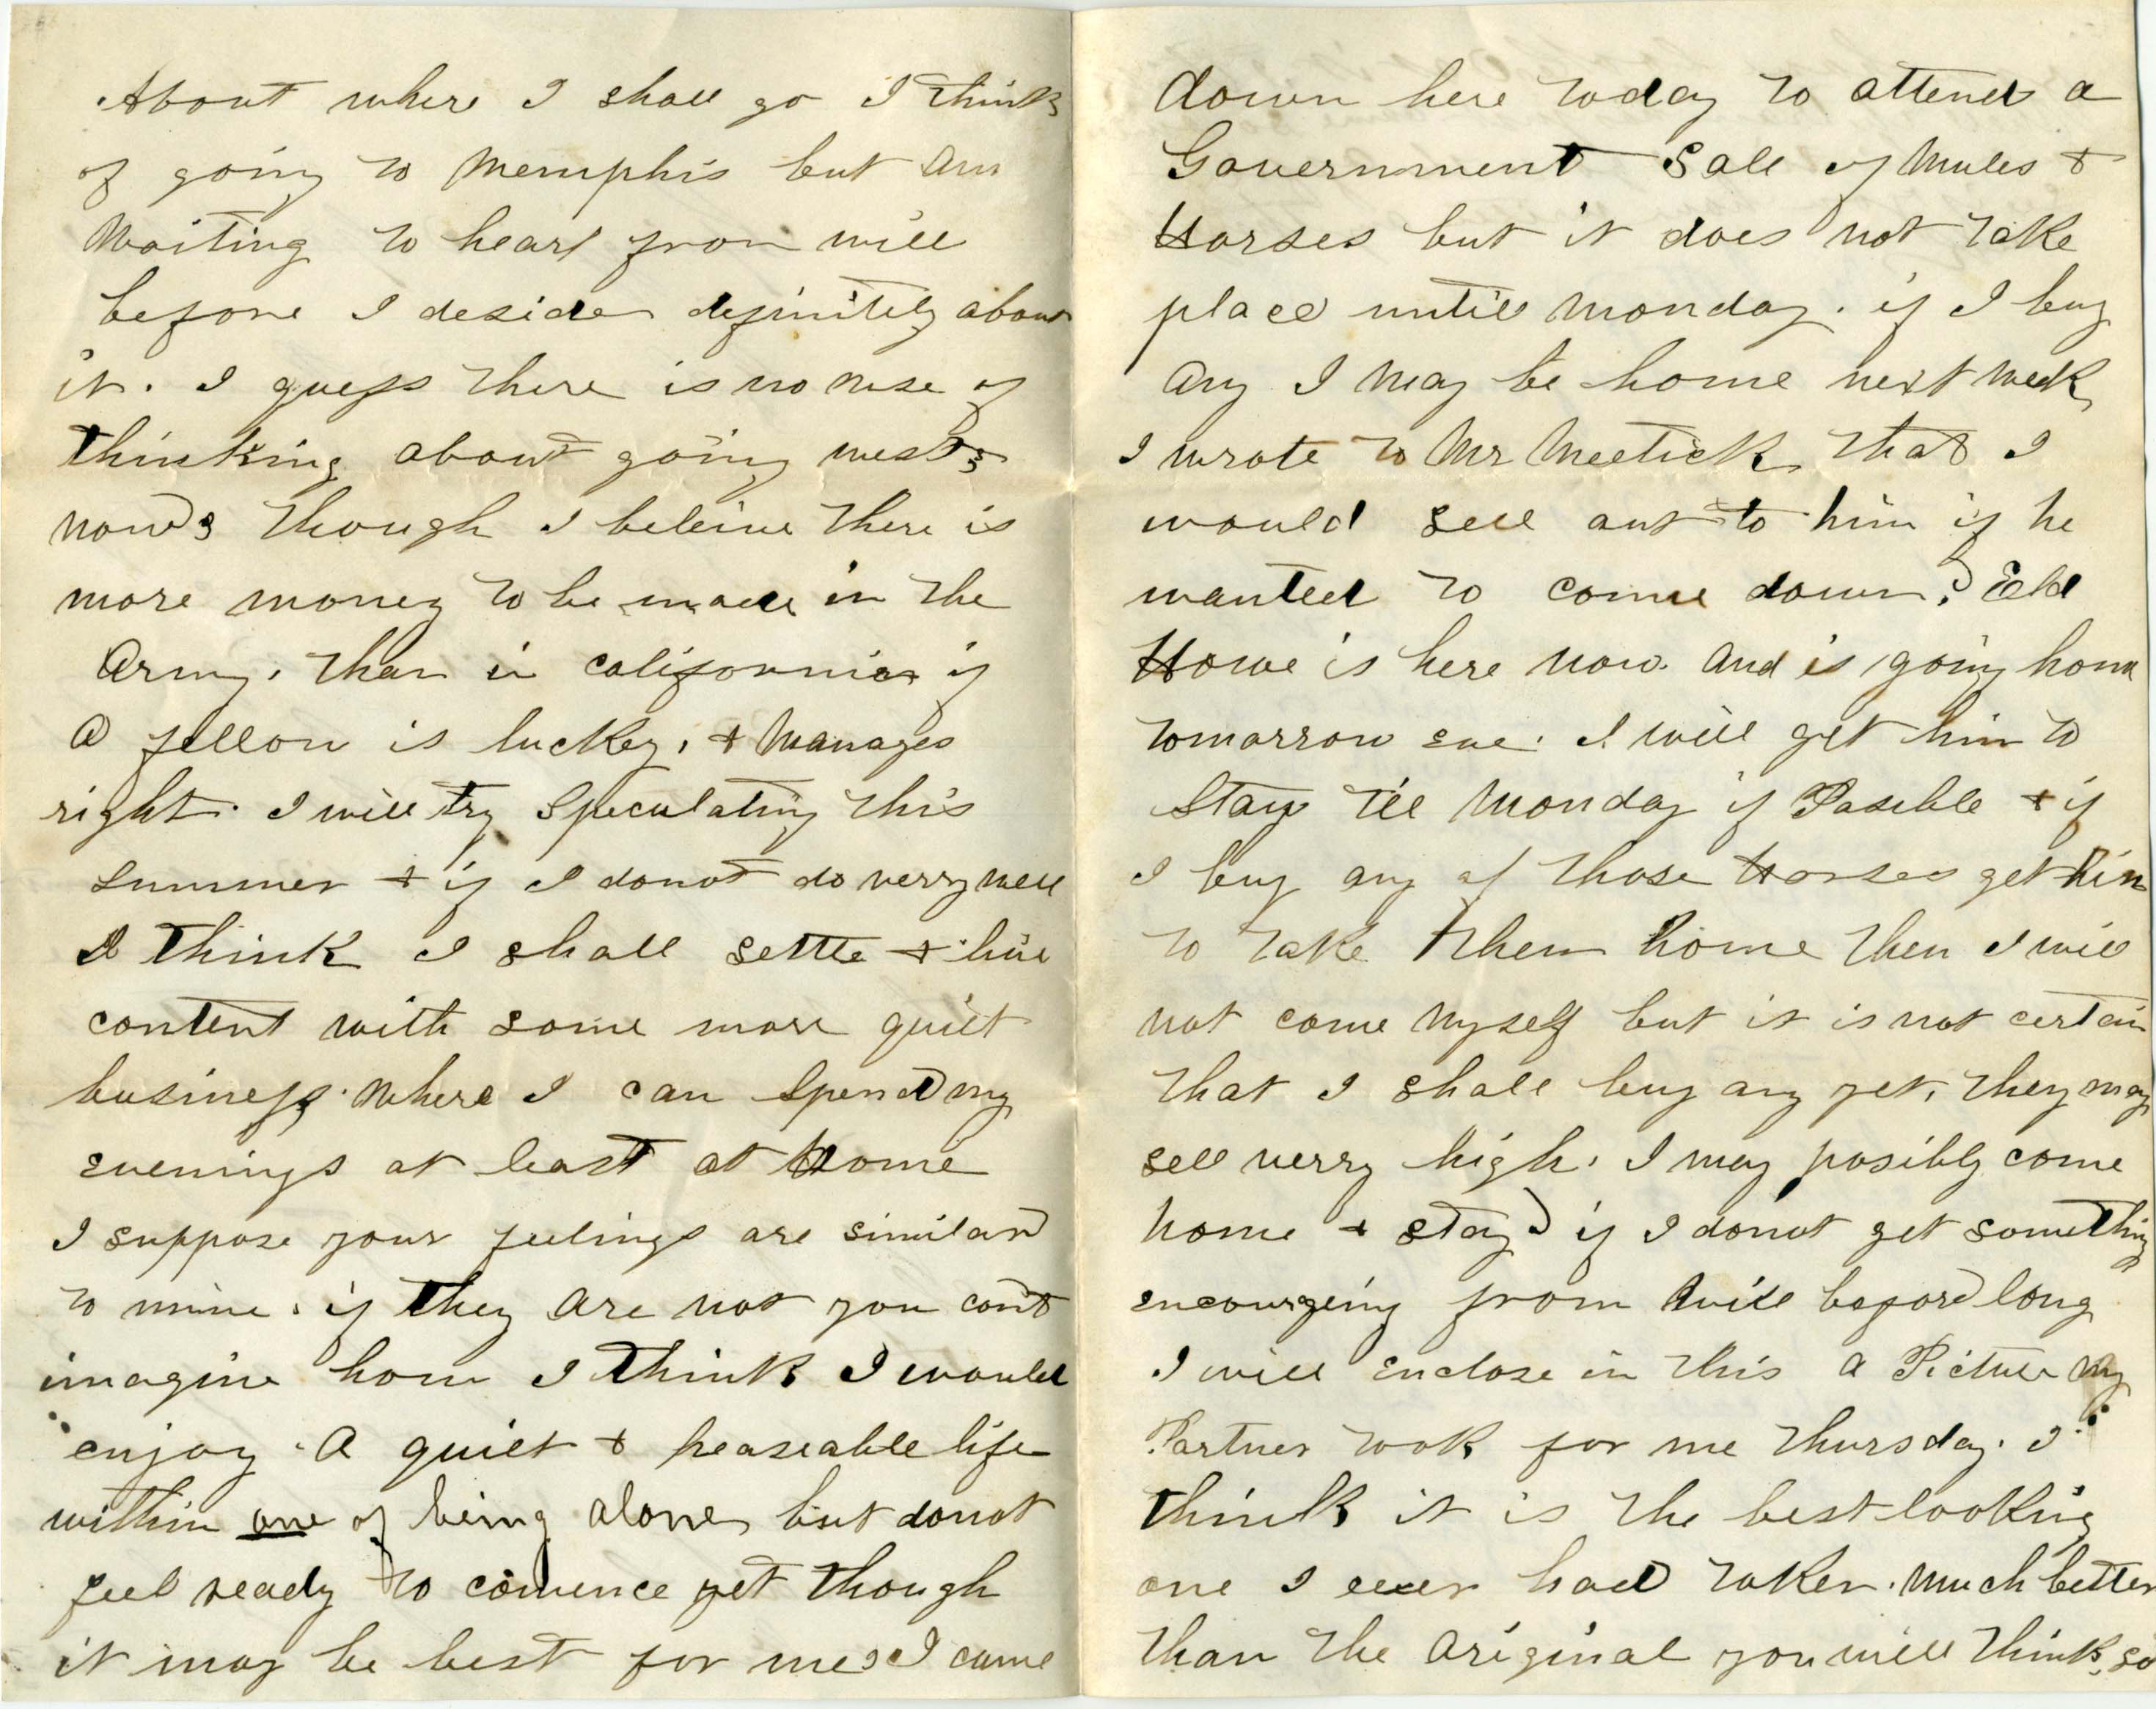 About where I shall go I think
of going to Memphis but am
Waiting to hear from will
before I deside definitely about
it. I guess there is no use of
thinking about going west
now though I beleive there is
more money to be made in the
Army, than in california if
A fellow is luckey, + Manages
right. I will try Speculating this
summer + if I donot do verry well
I think I shall settle + live
content with some more quiet
business where I can Spend my
evenings at least at Home
I suppose your feelings are similar
to mine. if they are not you cant
imagine how I think I would
enjoy A quiet + peaseable life
within one of being alone but donot
feel ready to comence yet though
it may be best for me I came
down here today to attend a
Government Sale of Mules +
Horses but it does not take
place until Monday. if I buy
Any I may be home next week
I wrote to Mr that I
would sell out to him if he
wanted to come down.
Howe is here now. And is going home
tomorrow eve. I will get him to
Stay till Monday if Posible + if
I buy any of those Horses get him
to take them home then I will
not come Myself but it is not certain
that I shall buy any yet, they may
sell verry high. I may posibly come
home + stay if I donot get something
encourgeing from will before long
I will enclose in this a Picture My
Partner took for me Thursday. I
think it is the best looking
one I ever had taken. Much better
than the Original you will think so